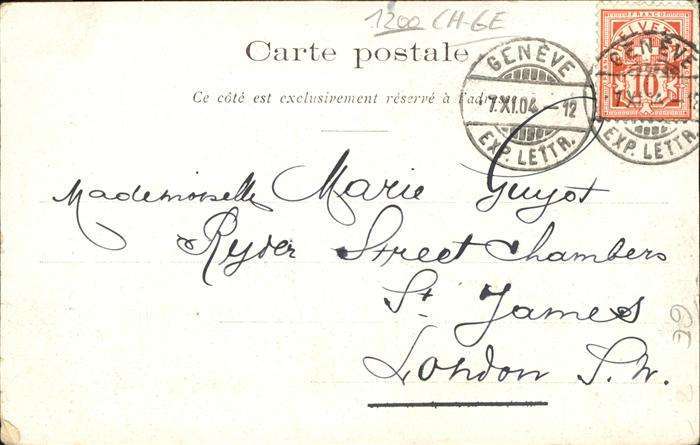 1200 CH-GE
Carte postale
Ce côté est exclusivement réservé à l'adresse
GENÈVE
7.XI.04.-12
EXP. LETTR.
FRANCO
HELVETIA
10
GENÈVE
7.XI.04
EXP. LETTR.
Mademoiselle Marie Guyot
Ryder Street Chambers
St. James
London S.W.